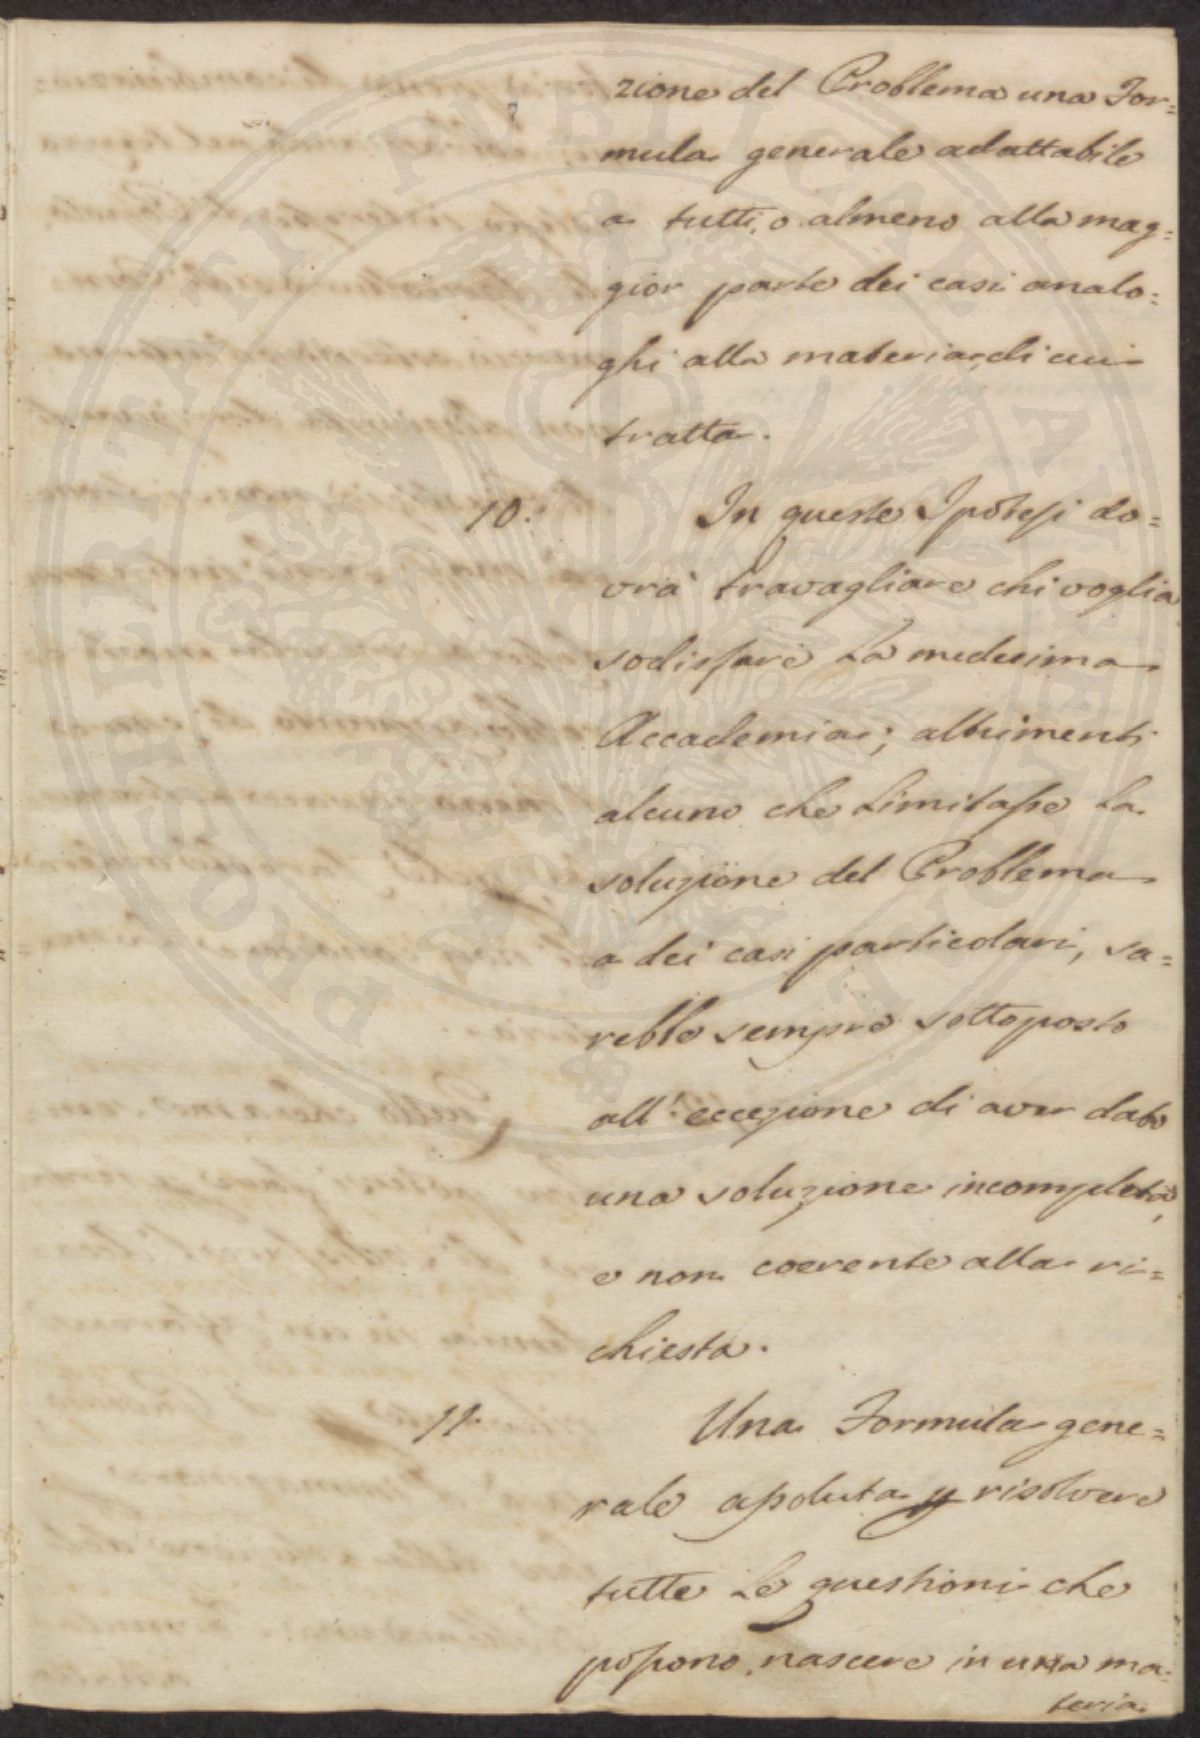 zione del Problema una For=
mula generale adattabile
a tutti, o almeno alla mag=
gior parte dei casi analo=
ghi alla materia, di cui
tratta.
10. In queste Ipotesi do=
vrà travagliare chi voglia
sodisfare La medesima
Accademia; altrimenti
alcuno che Limitasse La
soluzione del Problema
a dei casi particolari, sa=
rebbe sempre sottoposto
all' eccezione di aver dato
una soluzione incompleta,
e non coerente alla ri=
chiesta.
11. Una Formula gene=
rale assoluta p risolvere
tutte Le questioni che
possono nascere in una ma=
teria
PIOSPITATI PUBLICAE AUGENDAE